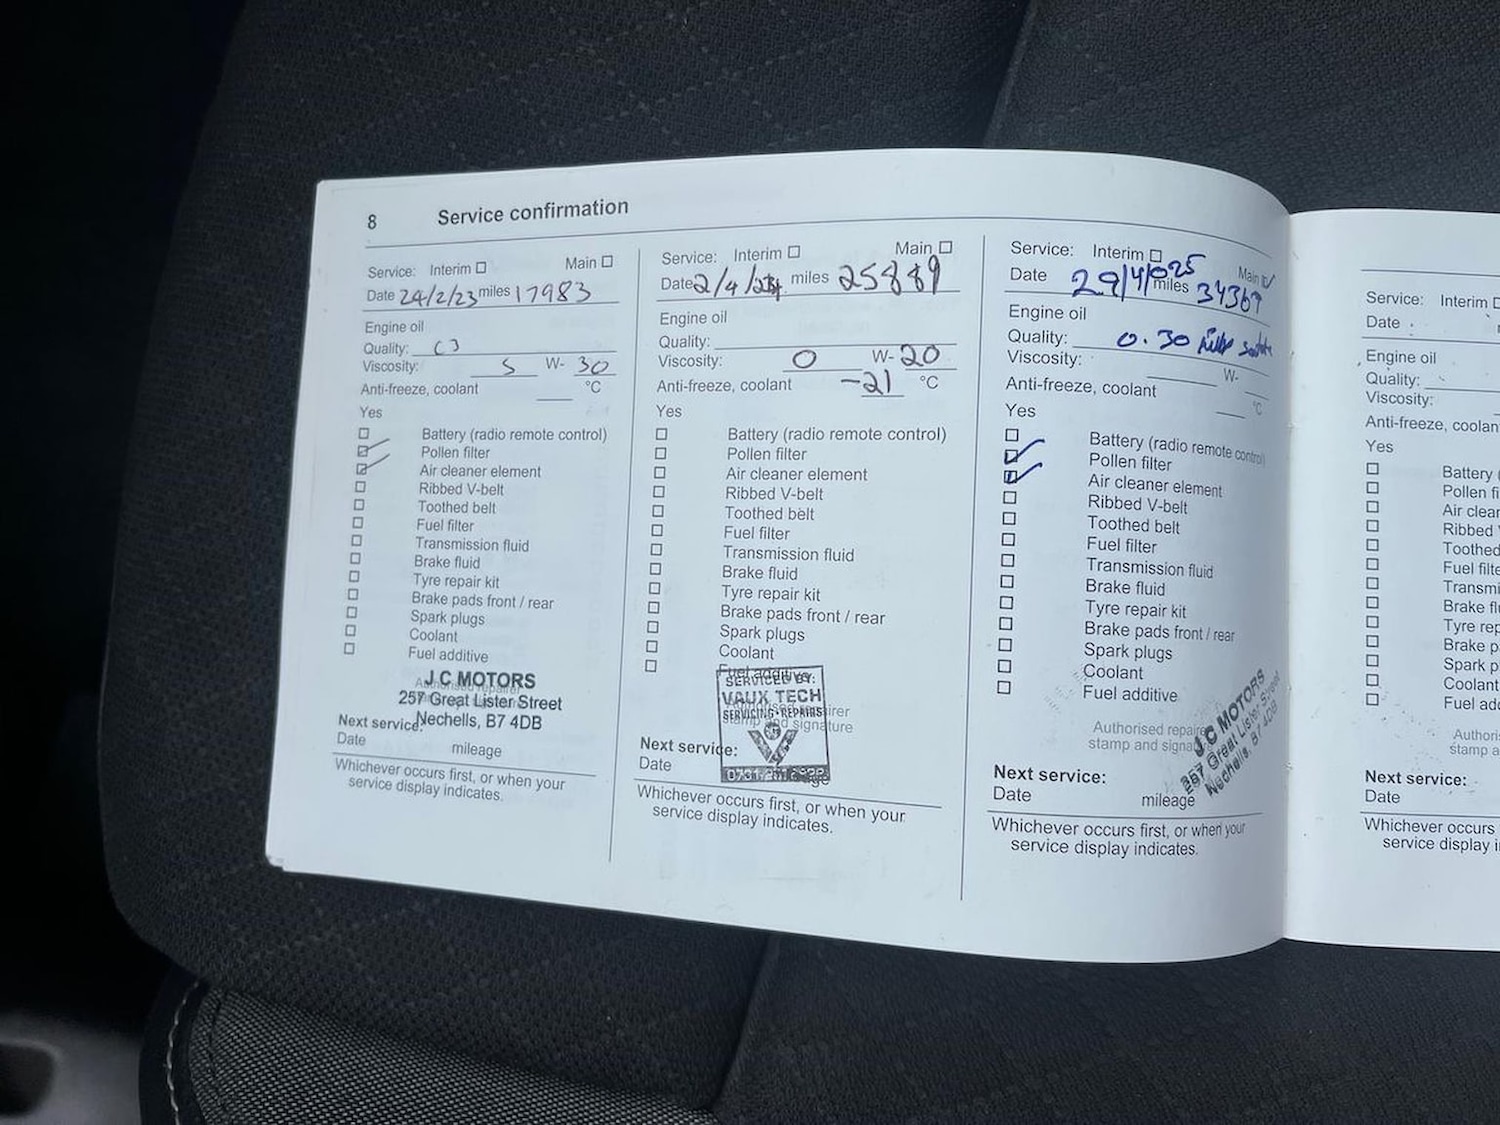 8 Service confirmation
Service: Interim Main
Date 24/2/23 miles 17983
Engine oil
Quality: C3
Viscosity: 5 W- 30
Anti-freeze, coolant °C
Yes
Battery (radio remote control)
Pollen filter
Air cleaner element
Ribbed V-belt
Toothed belt
Fuel filter
Transmission fluid
Brake fluid
Tyre repair kit
Brake pads front / rear
Spark plugs
Coolant
Fuel additive
J C MOTORS
257 Great Lister Street
Nechells, B7 4DB
Next service:
Date mileage
Whichever occurs first, or when your
service display indicates.
Service: Interim Main
Date 2/4/24 miles 25889
Engine oil
Quality:
Viscosity: 0 W- 20
Anti-freeze, coolant -21 °C
Yes
Battery (radio remote control)
Pollen filter
Air cleaner element
Ribbed V-belt
Toothed belt
Fuel filter
Transmission fluid
Brake fluid
Tyre repair kit
Brake pads front / rear
Spark plugs
Coolant
Fuel additive
SERVICED BY:
VAUX TECH
SERVICING · REPAIRS
stamp and signature
Next service:
Date mileage
Whichever occurs first, or when your
service display indicates.
Service: Interim Main
Date 29/4/025 miles 34367
Engine oil
Quality: 0.30 fully
Viscosity: W-
Anti-freeze, coolant °C
Yes
Battery (radio remote control)
Pollen filter
Air cleaner element
Ribbed V-belt
Toothed belt
Fuel filter
Transmission fluid
Brake fluid
Tyre repair kit
Brake pads front / rear
Spark plugs
Coolant
Fuel additive
Authorised repairer
stamp and signa
J C MOTORS
257 Great Lister Street
Nechells, B7 4DB
Next service:
Date mileage
Whichever occurs first, or when your
service display indicates.
Service: Interim
Date
Engine oil
Quality:
Viscosity:
Anti-freeze, coolan
Yes
Battery
Pollen fi
Air clear
Ribbed
Toothed
Fuel filte
Transmi
Brake fl
Tyre rep
Brake p
Spark p
Coolant
Fuel add
Authoris
stamp a
Next service:
Date
Whichever occurs
service display i